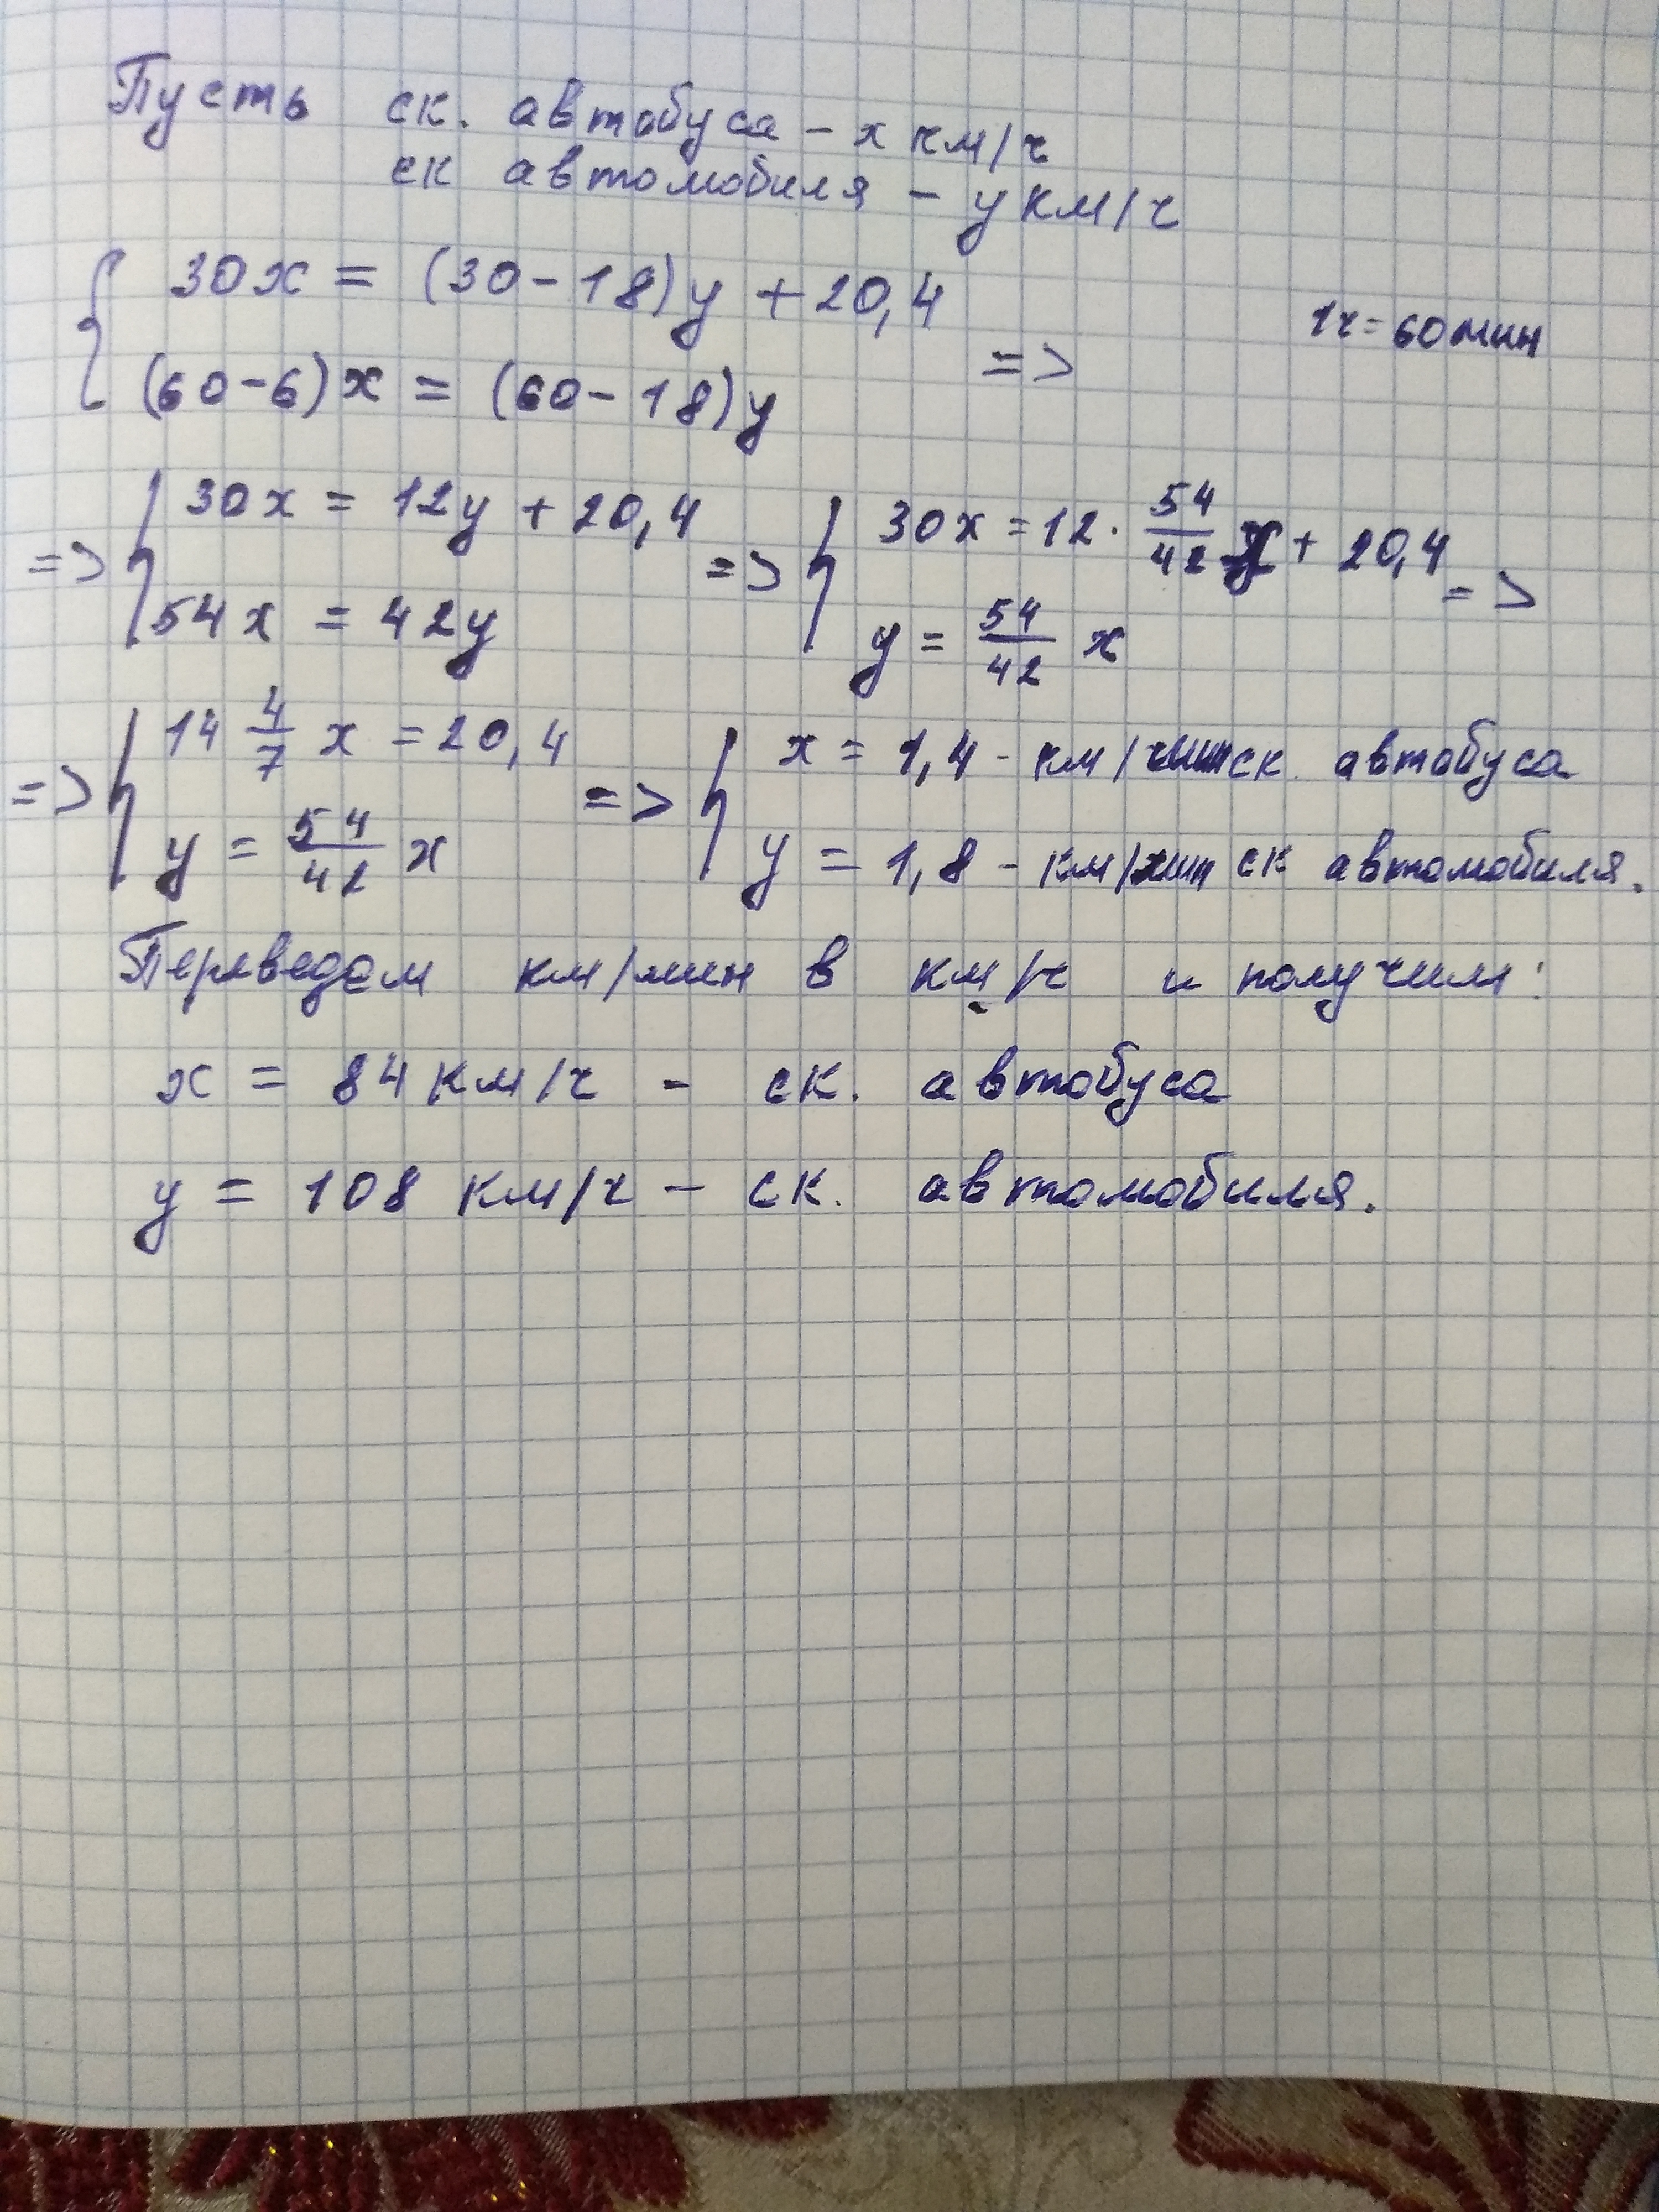 Пусть ск. автобуса – x км/ч
ск автомобиля – y км/ч
{ 30x = (30-18)y + 20,4
(60-6)x = (60-18)y =>
1ч = 60 мин
=> { 30x = 12y + 20,4
54x = 42y
=> { 30x = 12 · 54/42 x + 20,4
y = 54/42 x =>
=> { 14 4/7 x = 20,4
y = 54/42 x
=> { x = 1,4 - км/мин ск автобуса
y = 1,8 - км/мин ск автомобиля.
Переведем км/мин в км/ч и получим:
x = 84 км/ч - ск. автобуса
y = 108 км/ч – ск. автомобиля.